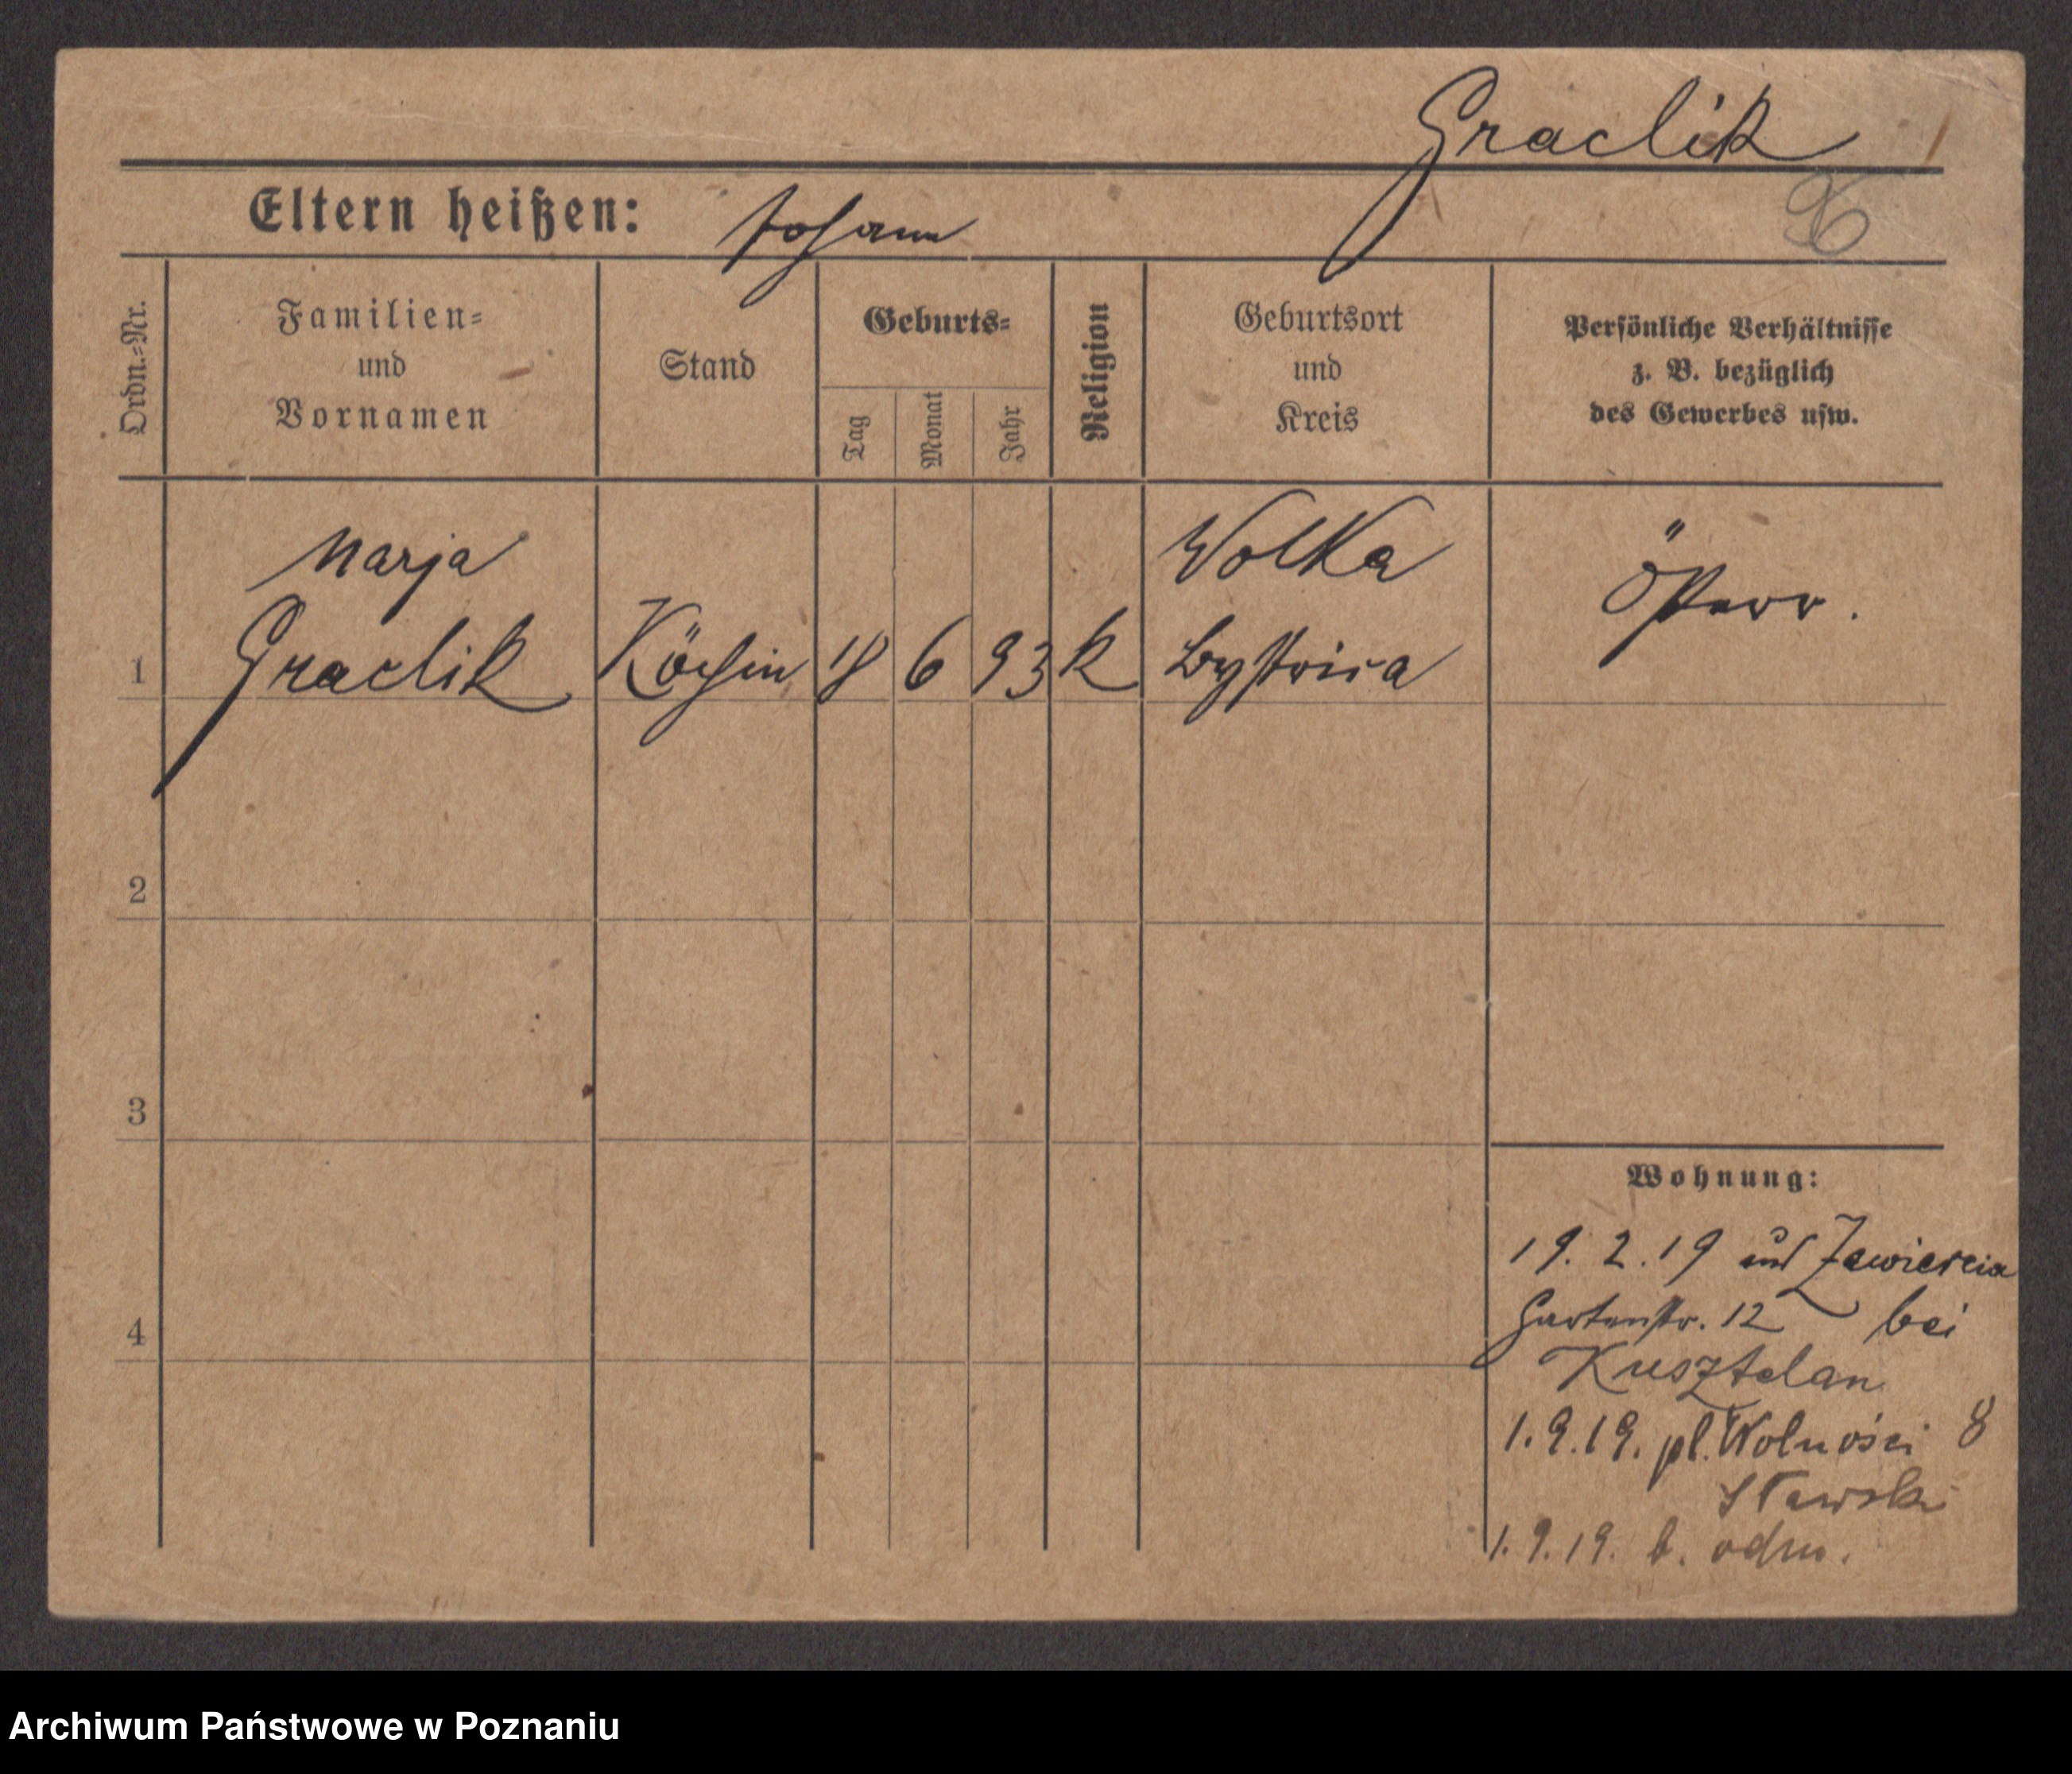 Graclik
Eltern heißen: Johann
Ordn.-Nr.
Familien-
und
Vornamen
Stand
Geburts-
Tag
Monat
Jahr
Religion
Geburtsort
und
Kreis
Persönliche Verhältnisse
z. B. bezüglich
des Gewerbes usw.
Marja
Wolka
Österr.
1 Graclik Köchin 18 6 93 k Bystrica
2
3
4
Wohnung:
19. 2. 19 aus Zawiercia
Gartenstr. 12 bei
Kusztelan
1.9.19. pl. Wolności 8
Stawski
1.9.19. b. odm.
Archiwum Państwowe w Poznaniu